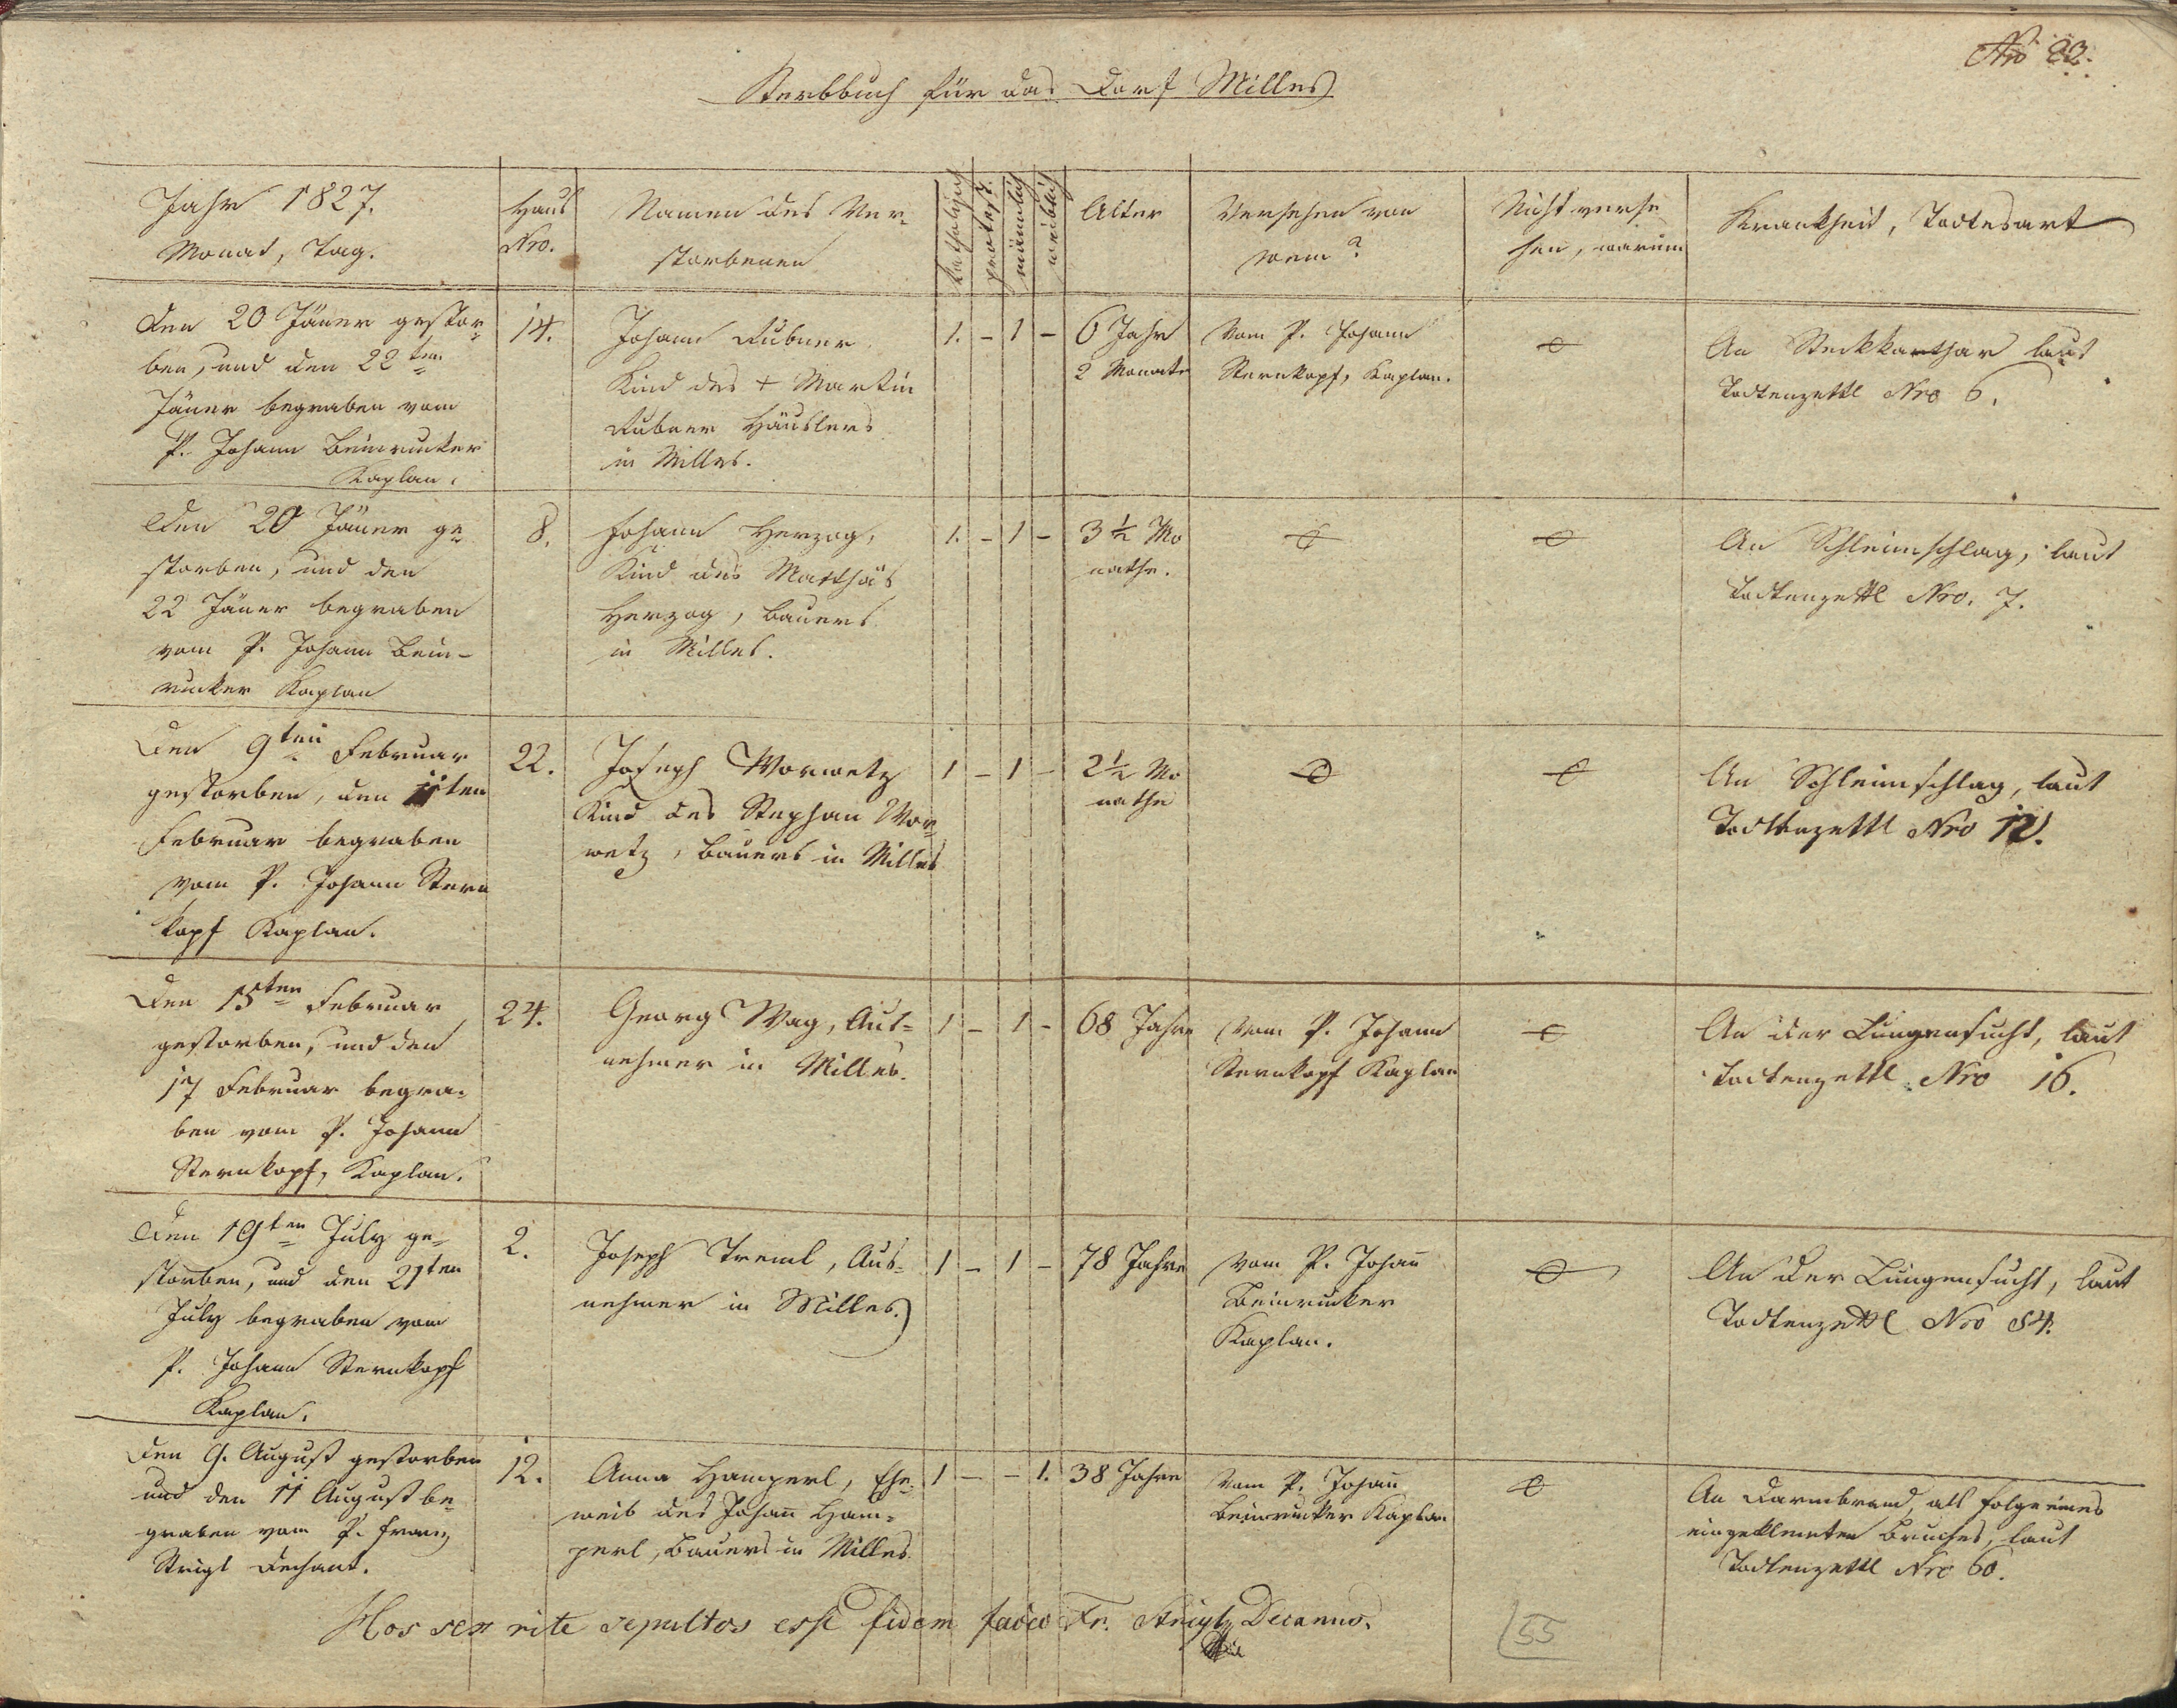 Nro 22.
Sterbbuch für das Dorf Milles
Jahr 1827.
Monat, Tag.
Haus
Nro.
Namen des Ver-
storbenen
katholisch
protest.
männlich
weiblich
Alter
Versehen von
wem?
Nicht verse
hen, warum
Krankheit, Todtesart
den 20 Jäner gestor-
ben, und den 22ten
Jäner begraben vom
P. Johann Beinrucker
Kaplan.
14.
Johann Rubner
Kind des + Martin
Rubner Häuslers
in Milles.
1. - 1 -
6 Jahr
2 Monate
Vom P. Johann
Sternkopf, Kaplan.
An Steckkathar laut
Todtenzettl Nro 6.
Den 20 Jäner ge-
storben, und den
22 Jäner begraben
vom P. Johann Bein-
rucker Kaplan
8.
Johann Herzog,
Kind des Matthäs
Herzog, Bauers
in Milles.
1. - 1 -
3 ½ Mo
nathe.
An Schleimschlag, laut
Todtenzettl Nro. 7.
Den 9ten Februar
gestorben, den 11ten
Februar begraben
vom P. Johann Stern
kopf Kaplan.
22.
Joseph Worwetz
Kind des Stephan Wor-
wetz, Bauers in Milles
1 - 1 -
2 ½ Mo
nathe
An Schleimschlag, laut
Todtenzettl Nro 12.
Den 15ten Februar
gestorben, und den
17 Februar begra-
ben vom P. Johann
Sternkopf, Kaplan.
24.
Georg Wag, Aus-
nehmer in Milles.
1 - 1 -
68 Jahre
Vom P. Johann
Sternkopf Kaplan
An der Lungensucht, laut
Todtenzettl Nro 16.
Den 19ten July ge-
storben, und den 21ten
July begraben vom
P. Johann Sternkopf
Kaplan.
2.
Joseph Treml, Aus-
nehmer in Milles.
1 - 1 -
78 Jahre
Vom P. Johañ
Beinrucker
Kaplan.
An der Lungensucht, laut
Todtenzettl Nro 54.
Den 9. August gestorben
und den 11 August be-
graben vom P. Franz
Strigl Dechant.
12.
Anna Hamperl, Ehe-
weib des Johañ Ham-
perl, Bauers in Milles.
1 - - 1.
38 Jahre
Vom P. Johañ
Beinrucker Kaplan
An Darmbrand, als Folge eines
eingeklemten Bruches, laut
Todtenzettl Nro 60.
Hos sex rite sepultos esse fidem facio Fr. Strigl, Decanus.
55